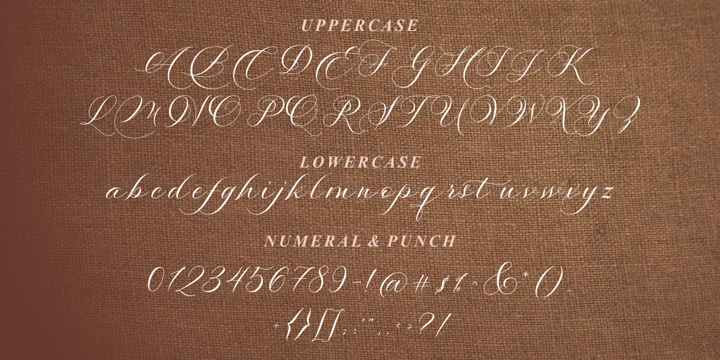 UPPERCASE
A B C D E F G H I J K
L M N O P Q R S T U V W X Y Z
LOWERCASE
a b c d e f g h i j k l m n o p q r s t u v w x y z
NUMERAL & PUNCH
0 1 2 3 4 5 6 7 8 9 - ! @ # $ % ^ & * ( ) _
+ { } [ ] ; : ' " , . < > ? /